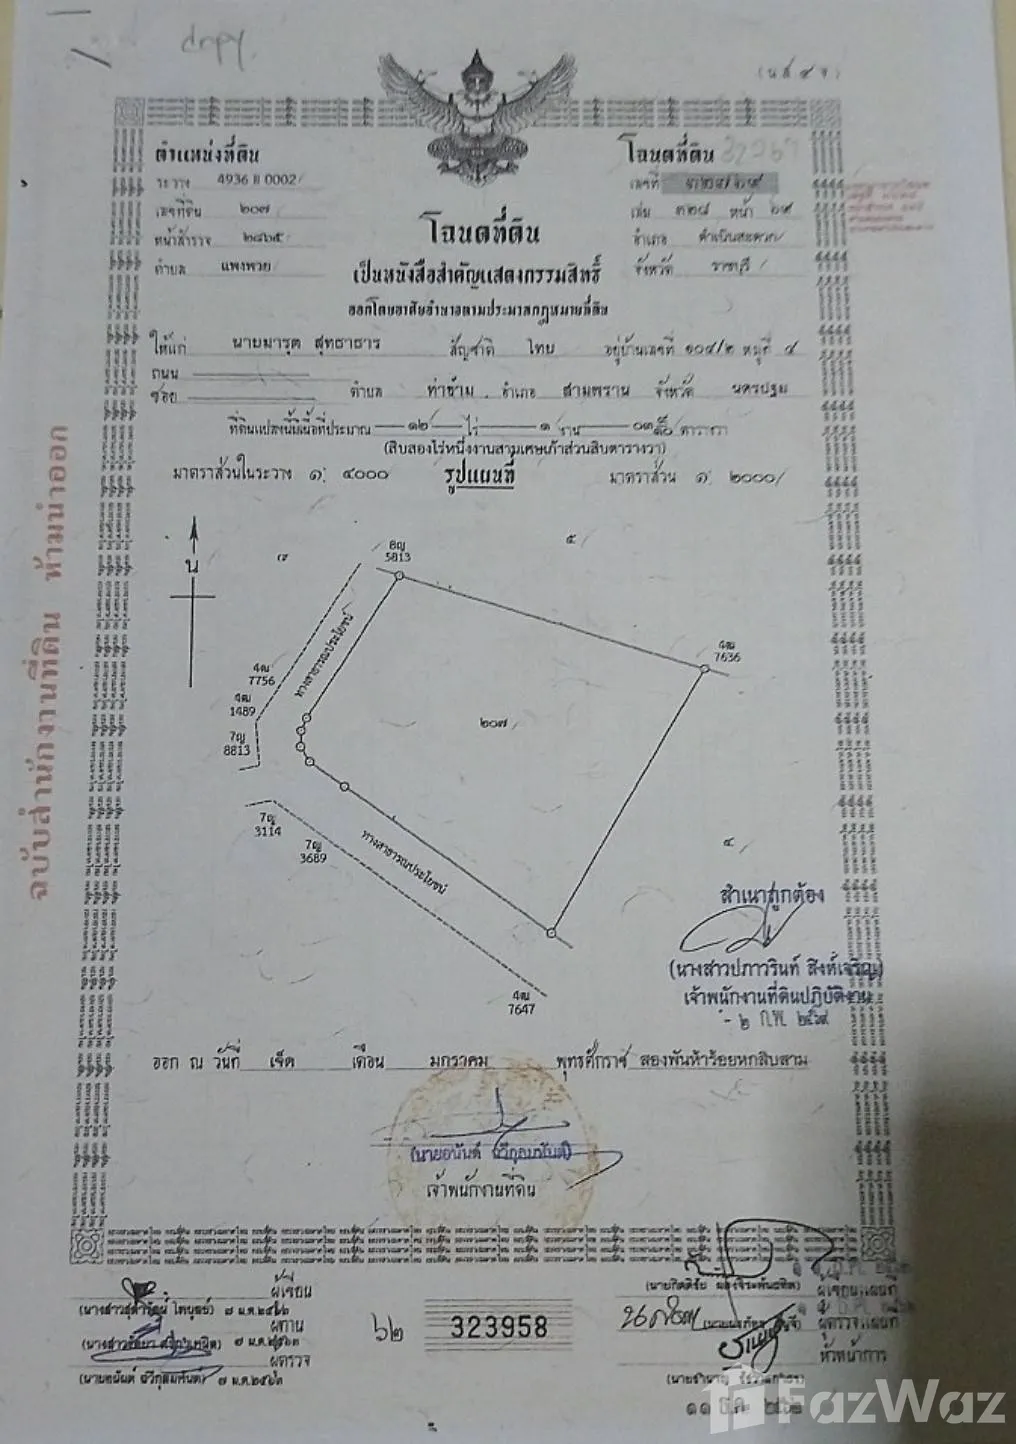 copy
(น.ส. ๔ จ)
ตำแหน่งที่ดิน
ระวาง 4936 II 0002/
เลขที่ดิน ๒๐๗
หน้าสำรวจ ๒๘๖๕
ตำบล แพงพวย
โฉนดที่ดิน
เลขที่
เล่ม ๓๒๘ หน้า ๖๙
อำเภอ ดำเนินสะดวก/
จังหวัด ราชบุรี /
โฉนดที่ดิน
เป็นหนังสือสำคัญแสดงกรรมสิทธิ์
ออกโดยอาศัยอำนาจตามประมวลกฎหมายที่ดิน
ให้แก่ นายมารุต สุทธาธาร สัญชาติ ไทย อยู่บ้านเลขที่ ๑๐๔/๒ หมู่ที่ ๔
ถนน
ซอย ตำบล ท่าข้าม อำเภอ สามพราน จังหวัด นครปฐม
ที่ดินแปลงนี้มีเนื้อที่ประมาณ ๑๒ ไร่ ๑ งาน ตารางวา
(สิบสองไร่หนึ่งงานสามเศษเก้าส่วนสิบตารางวา)
มาตราส่วนในระวาง ๑: ๔๐๐๐ รูปแผนที่ มาตราส่วน ๑: ๒๐๐๐/
น
๕
8ญ
5813
4ฒ
7636
ทางสาธารณประโยชน์
4ฒ
7756
4ฒ
1489
7ญ
8813
๒๐๗
7ญ
3114
7ญ
3689
ทางสาธารณประโยชน์
๔
4ฒ
7647
ฉบับสำนักงานที่ดิน ห้ามนำออก
สำเนาถูกต้อง
(นางสาวปภาวรินท์ สิงห์เจริญ)
เจ้าพนักงานที่ดินปฏิบัติงาน
- ๒ ก.พ. ๒๕๖๙
ออก ณ วันที่ เจ็ด เดือน มกราคม พุทธศักราช สองพันห้าร้อยหกสิบสาม
เจ้าพนักงานที่ดิน
ผู้เขียน
๗ ม.ค. ๒๕๖๓
ผู้ทาน
๗ ม.ค. ๒๕๖๓
ผู้ตรวจ
๗ ม.ค. ๒๕๖๓
๖๒ 323958
ผู้เขียนแผนที่
ผู้ตรวจแผนที่
หัวหน้าการ
FazWaz